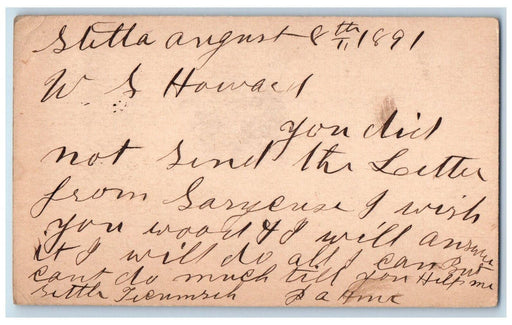 Stella august 8th 1891
W S Howard
you did
not send the Letter
from Sarycuse I wish
you wood & I will answer
it I will do all I can But
cant do much till you Help me
settle Ticumseh